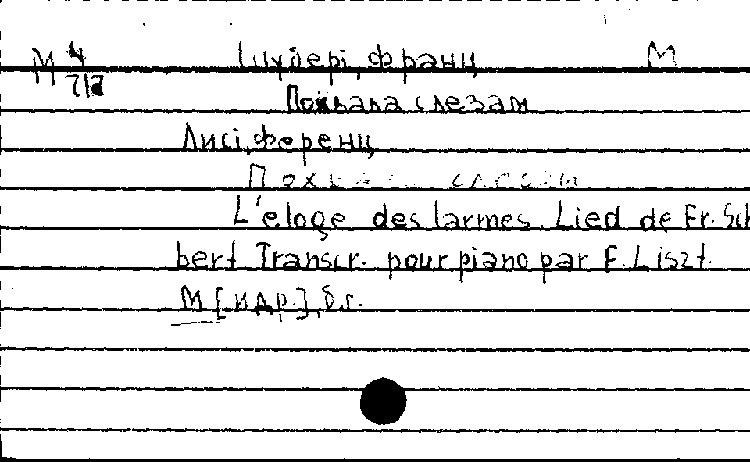 М 4/712 Шуберт, Франц М
Похвала слезам
Лист, Ференц
Похвала слезам
L'eloge des larmes. Lied de Fr. Schu
bert Transcr. pour piano par F. Liszt.
М [и др.], б.г.